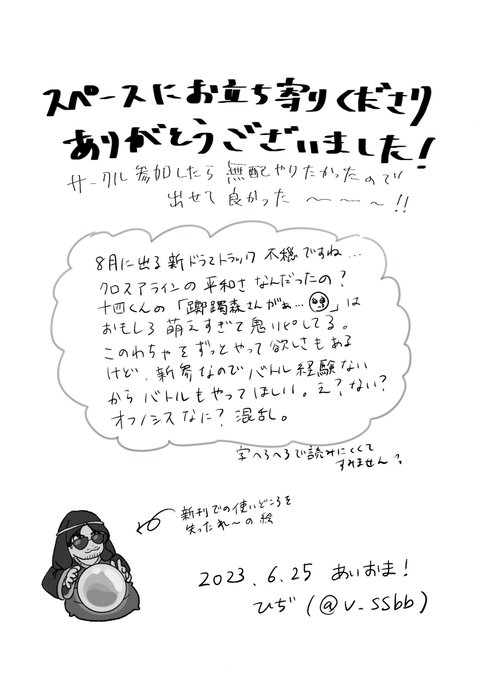 スペースにお立ち寄りくださり
ありがとうございました!
サークル参加したら無配やりたかったので
出せて良かった〜〜〜!!
8月に出る新ドラマトラック不穏ですね…
クロスアラインの平和さなんだったの?
十四くんの「躑躅森さんがぁ…」は
おもしろ萌えすぎて鬼リピしてる。
このわちゃをずっとやって欲しさもある
けど、新参なのでバトル経験ない
からバトルもやってほしい。え?ない?
オフノシスなに?混乱。
字へろへろで読みにくくて
すみません
新刊での使いどころを
失ったれ〜の絵
2023.6.25 あいおま!
ひぢ(@v_ssbb)